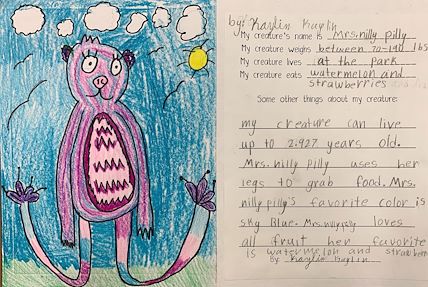 by: Kaylin Kaylin
My creature's name is Mrs. nilly pilly
My creature weighs between 70-190 lbs
My creature lives at the park
My creature eats watermelon and
strawberries
Some other things about my creature:
my creature can live
up to 2,927 years old.
Mrs. nilly pilly uses her
legs to grab food. Mrs.
nilly pilly's favorite color is
sky Blue. Mrs. nilly pilly loves
all fruit her favorite
is watermelon and strawberr
By Kaylin Kaylin